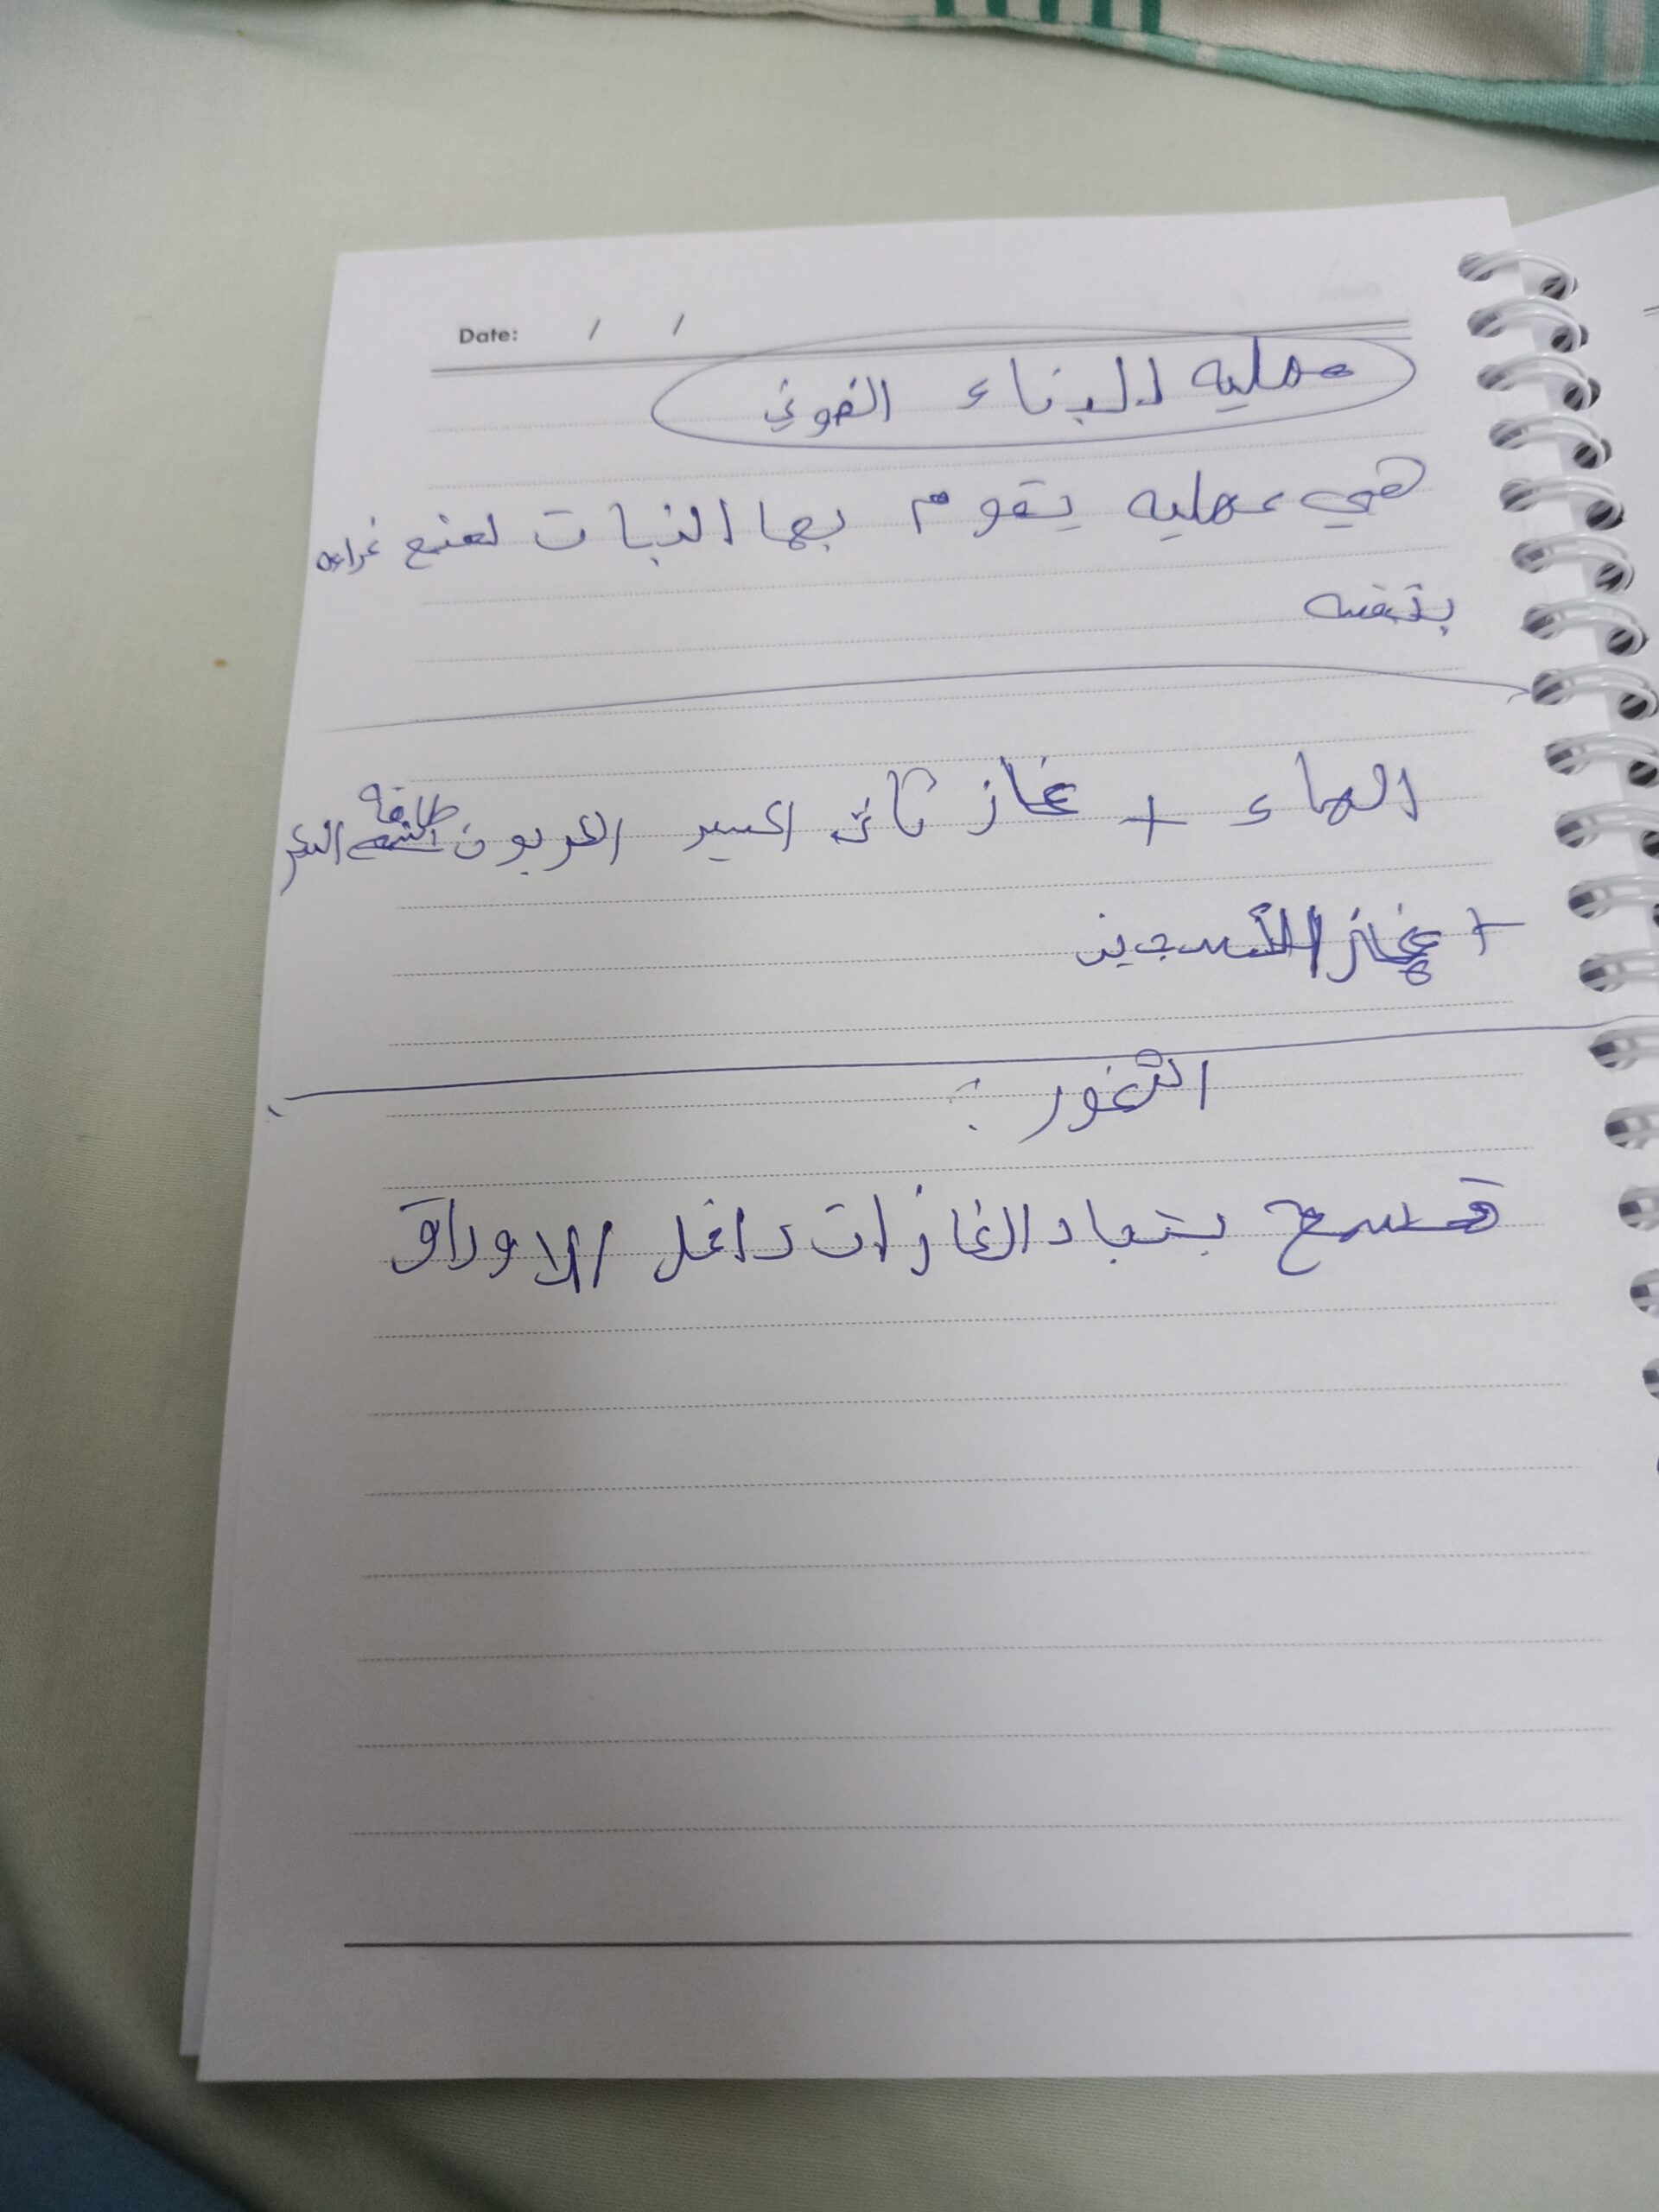 Date: / /
عمليه البناء الضوئي
هي عمليه يقوم بها النبات لصنع غذاءه
بنفسه
الماء + غاز ثاني اكسيد الكربون طاقه الشمس السكر
+ غاز الأكسجين
الثغور :
تسمح بتباد الغازات داخل الاوراق